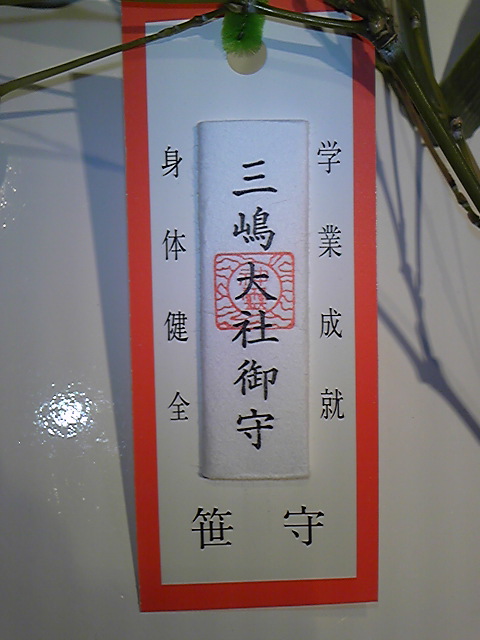 学業成就
三嶋大社御守
身体健全
笹守